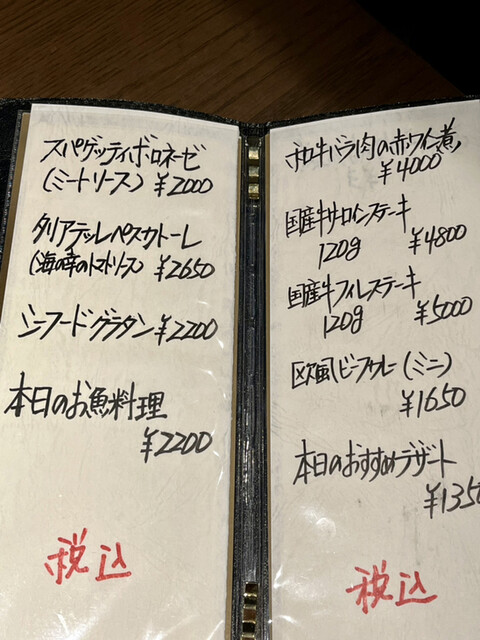 スパゲッティボロネーゼ
(ミートソース) ¥2000
タリアテッレペスカトーレ
(海の幸のトマトソース) ¥2650
シーフードグラタン ¥2200
本日のお魚料理
¥2200
税込
和牛バラ肉の赤ワイン煮
¥4000
国産牛サロインステーキ
120g ¥4800
国産牛フィレステーキ
120g ¥5000
欧風ビーフカレー(ミニ)
¥1650
本日のおすすめデザート
¥1350
税込